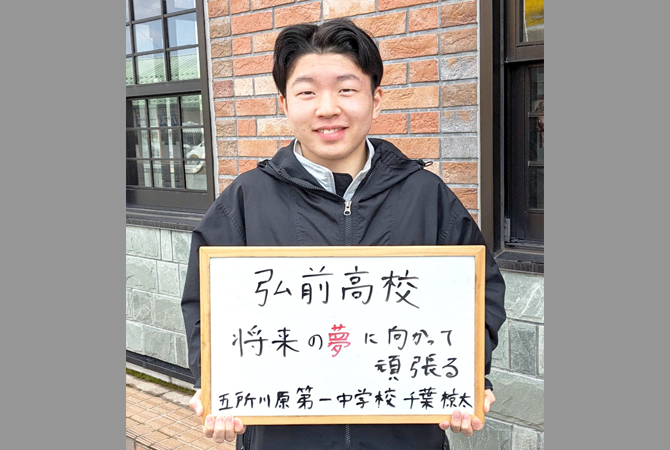 弘前高校
将来の夢に向かって
頑張る
五所川原第一中学校 千葉椋太